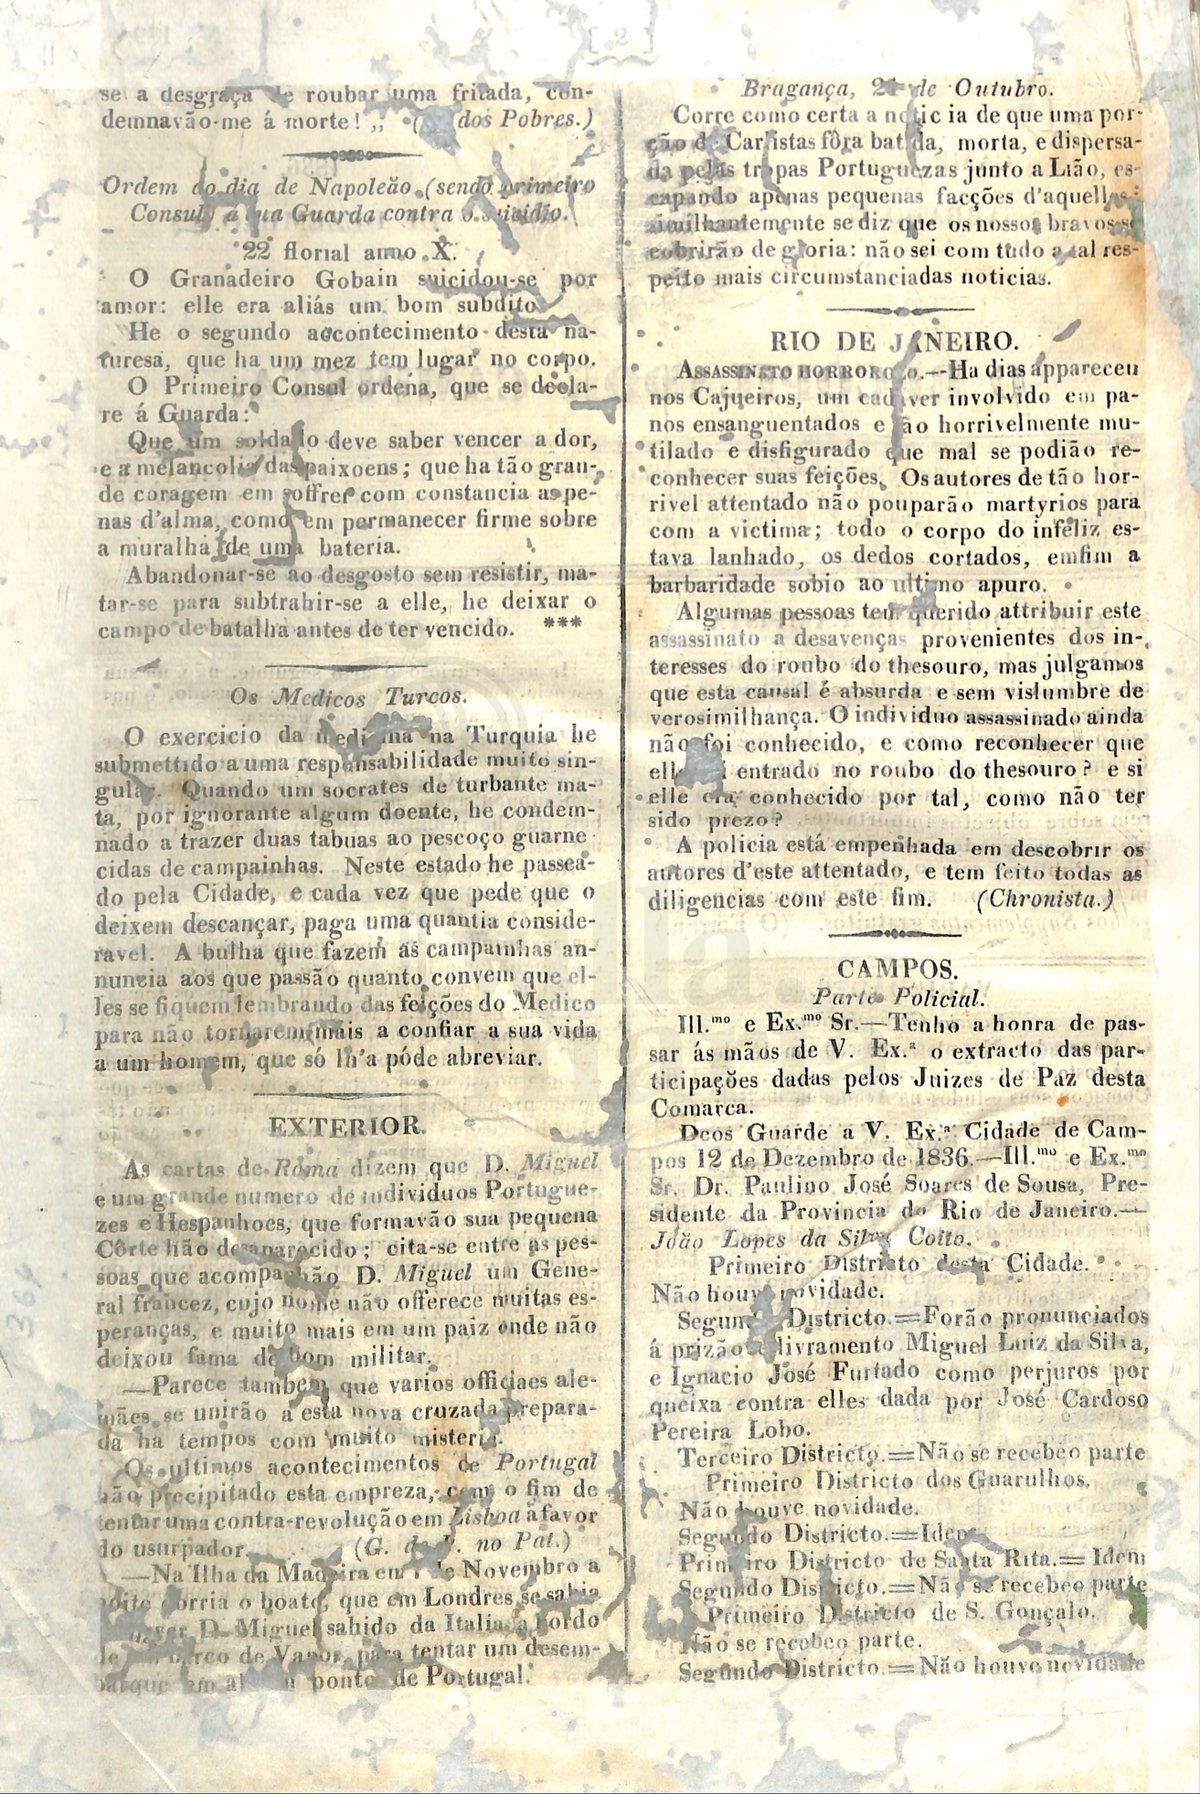 [ 2 ]
se a desgraça de roubar uma fritada, con-
demnavão-me á morte! ,, ( dos Pobres.)
Ordem do dia de Napoleão (sendo primeiro
Consul) á sua Guarda contra o suicidio.
22 florial anno X.
O Granadeiro Gobain suicidou-se por
amor: elle era aliás um bom subdito
He o segundo acontecimento desta na-
turesa, que ha um mez tem lugar no corpo.
O Primeiro Consul ordena, que se decla-
re á Guarda:
Que um soldado deve saber vencer a dor,
e a melancolia das paixoens; que ha tão gran-
de coragem em soffrer com constancia as pe-
nas d'alma, como em permanecer firme sobre
a muralha de uma bateria.
Abandonar-se ao desgosto sem resistir, ma-
tar-se para subtrahir-se a elle, he deixar o
campo de batalha antes de ter vencido. ***
Os Medicos Turcos.
O exercicio da medicina na Turquia he
submettido a uma responsabilidade muito sin-
gular. Quando um socrates de turbante ma-
ta, por ignorante algum doente, he condem-
nado a trazer duas tabuas ao pescoço guarne
cidas de campainhas. Neste estado he passea-
do pela Cidade, e cada vez que pede que o
deixem descançar, paga uma quantia conside-
ravel. A bulha que fazem as campainhas an-
nuncia aos que passão quanto convem que el-
les se fiquem lembrando das feições do Medico
para não tornarem mais a confiar a sua vida
a um homem, que só lh'a póde abreviar.
EXTERIOR.
As cartas de Roma dizem que D. Miguel
e um grande numero de individuos Portugue-
zes e Hespanhoes, que formavão sua pequena
Côrte hão desaparecido; cita-se entre as pes-
soas que acompanhão D. Miguel um Gene-
ral francez, cujo nome não offerece muitas es-
peranças, e muito mais em um paiz onde não
deixou fama de bom militar.
—Parece tambem que varios officiaes ale-
mães se unirão a esta nova cruzada prepara-
da ha tempos com muito misterio.
Os ultimos acontecimentos de Portugal
hão precipitado esta empreza, com o fim de
tentar uma contra-revolução em Lisboa á favor
do usurpador. (G. do P. no Pat.)
—Na Ilha da Madeira em de Novembro a
noite corria o boato, que em Londres se sabia
haver D. Miguel sahido da Italia a bordo
de um barco de Vapor para tentar um desem-
barque em algum ponto de Portugal.
Bragança, 21 de Outubro.
Corre como certa a noticia de que uma por-
ção de Carlistas fôra batida, morta, e dispersa-
da pelas tropas Portuguezas junto a Lião, es-
capando apenas pequenas facções d'aquelles:
similhantemente se diz que os nossos bravos se
cobrirão de gloria: não sei com tudo a tal res-
peito mais circumstanciadas noticias.
RIO DE JANEIRO.
ASSASSINATO HORROROZO.—Ha dias appareceu
nos Cajueiros, um cadaver involvido em pa-
nos ensanguentados e tão horrivelmente mu-
tilado e disfigurado que mal se podião re-
conhecer suas feições. Os autores de tão hor-
rivel attentado não pouparão martyrios para
com a victima; todo o corpo do infeliz es-
tava lanhado, os dedos cortados, emfim a
barbaridade sobio ao ultimo apuro.
Algumas pessoas tem querido attribuir este
assassinato a desavenças provenientes dos in-
teresses do roubo do thesouro, mas julgamos
que esta causal é absurda e sem vislumbre de
verosimilhança. O individuo assassinado ainda
não foi conhecido, e como reconhecer que
elle entrado no roubo do thesouro? e si
elle era conhecido por tal, como não ter
sido prezo?
A policia está empenhada em descobrir os
autores d'este attentado, e tem feito todas as
diligencias com este fim. (Chronista.)
CAMPOS.
Parte Policial.
Ill.mo e Ex.mo Sr.—Tenho a honra de pas-
sar ás mãos de V. Ex.a o extracto das par-
ticipações dadas pelos Juizes de Paz desta
Comarca.
Deos Guarde a V. Ex.a Cidade de Cam-
pos 12 de Dezembro de 1836.—Ill.mo e Ex.mo
Sr. Dr. Paulino José Soares de Sousa, Pre-
sidente da Provincia do Rio de Janeiro.—
João Lopes da Silva Coito.
Primeiro Districto desta Cidade.
Não houve novidade.
Segundo Districto.=Forão pronunciados
á prizão e livramento Miguel Luiz da Silva,
e Ignacio José Furtado como perjuros por
queixa contra elles dada por José Cardoso
Pereira Lobo.
Terceiro Districto.=Não se recebeo parte
Primeiro Districto dos Guarulhos.
Não houve novidade.
Segundo Districto.=Idem
Primeiro Districto de Santa Rita.=Idem
Segundo Districto.=Não se recebeo parte
Primeiro Districto de S. Gonçalo.
Não se recebeo parte.
Segundo Districto.=Não houve novidade